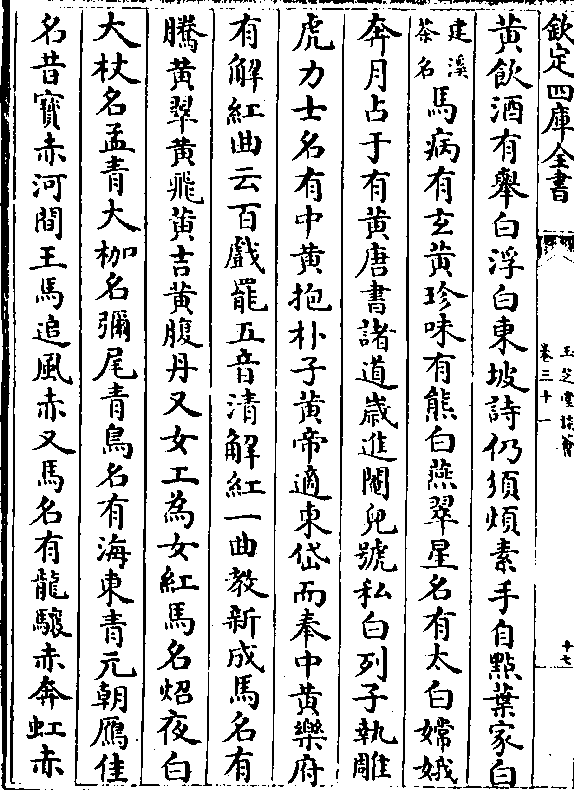 欽定四庫全書
玉芝堂談薈
卷三十一
十七
黄飲酒有舉白浮白東坡詩仍須煩素手自點葉家白
建溪
茶名
馬病有玄黄珍味有熊白燕翠星名有太白嫦娥
奔月占于有黄唐書諸道歲進閹兒號私白列子執雕
虎力士名有中黄抱朴子黄帝適東岱而奉中黄樂府
有解紅曲云百戲罷五音清解紅一曲教新成馬名有
騰黄翠黄飛黄吉黄腹丹又女工為女紅馬名炤夜白
大杖名孟青大枷名彌尾青鳥名有海東青元朝鴈佳
名昔寳赤河間王馬追風赤又馬名有龍驤赤奔虹赤